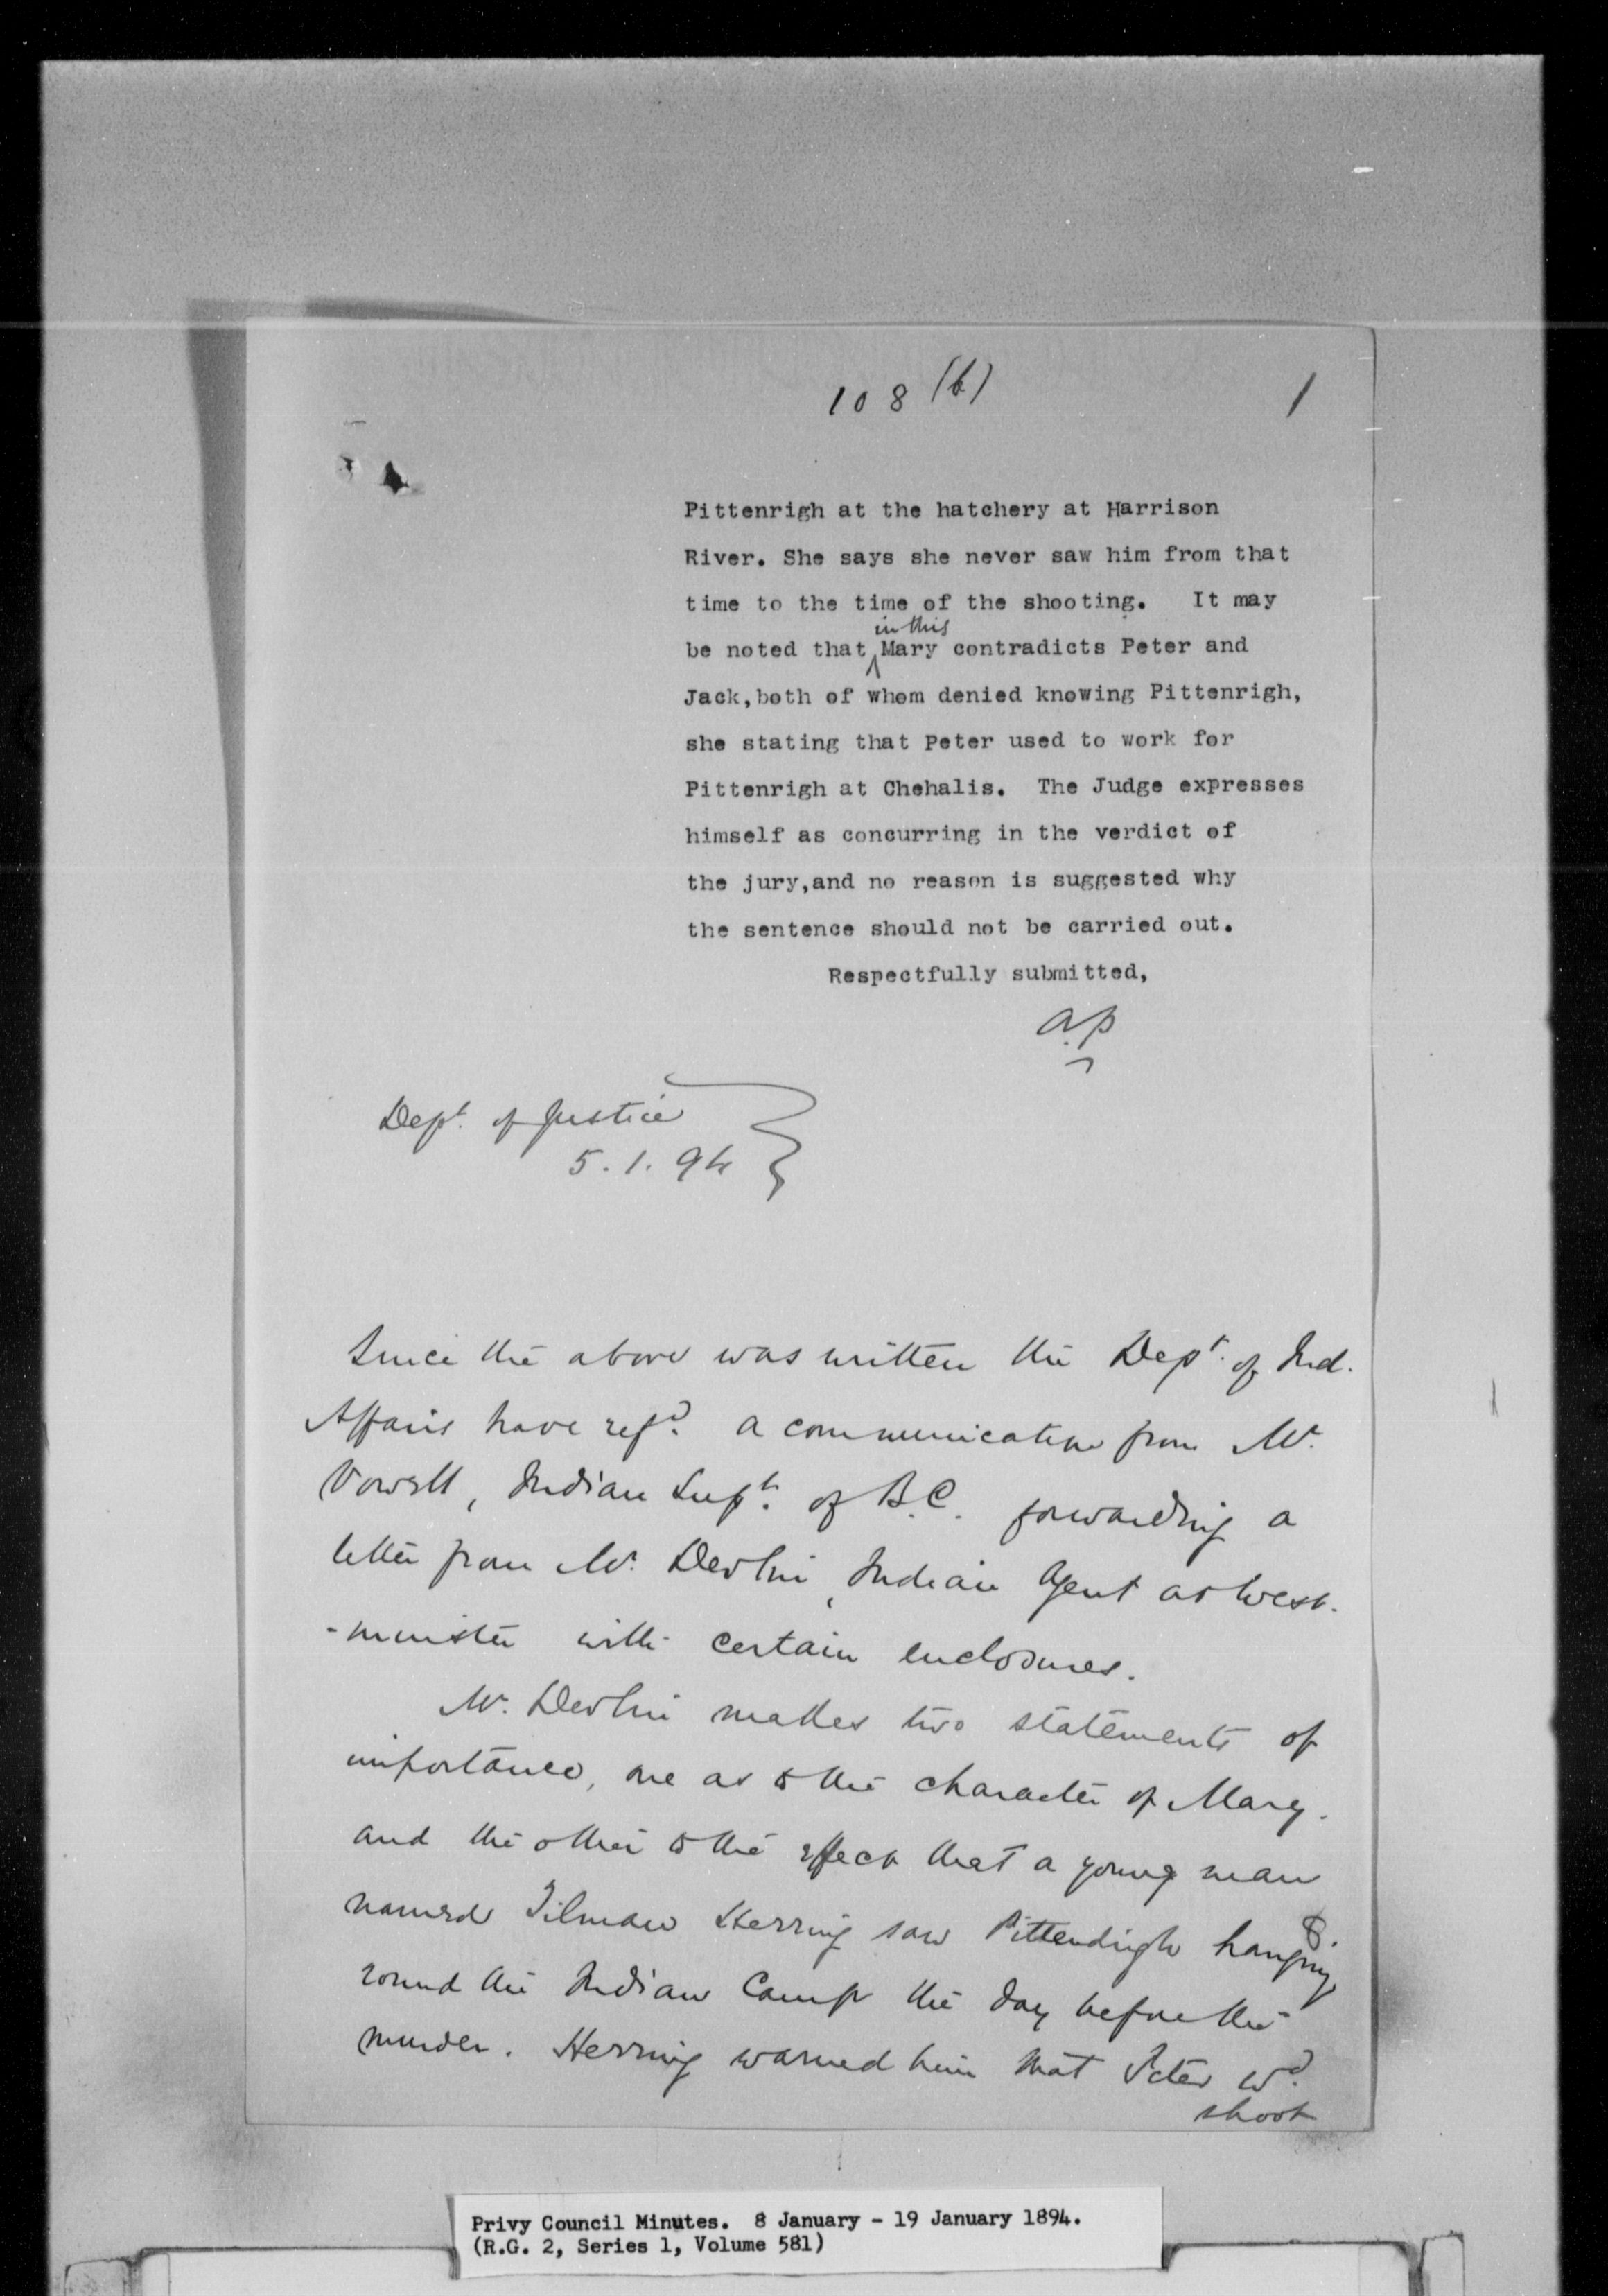 108 (b) 1
Pittenrigh at the hatchery at Harrison
River. She says she never saw him from that
time to the time of the shooting. It may
in this
be noted that Mary contradicts Peter and
Jack, both of whom denied knowing Pittenrigh,
she stating that Peter used to work for
Pittenrigh at Chehalis. The Judge expresses
himself as concurring in the verdict of
the jury, and no reason is suggested why
the sentence should not be carried out.
Respectfully submitted,
A.P
Dept. of Justice
5. 1. 94
Since the above was written the Dept. of Ind.
Affairs have refd. a communication from Mr.
Vowell, Indian Supt. of B.C. forwarding a
letter from Mr. Devlin, Indian Agent at West-
-minster with certain enclosures.
Mr. Devlin makes two statements of
importance, one as to the character of Mary.
and the other to the effect that a young man
named Tilman Herring saw Pittendrigh hanging
round the Indian Camp the day before the
murder. Herring warned him that Peter wd.
shoot
Privy Council Minutes. 8 January - 19 January 1894.
(R.G. 2, Series 1, Volume 581)